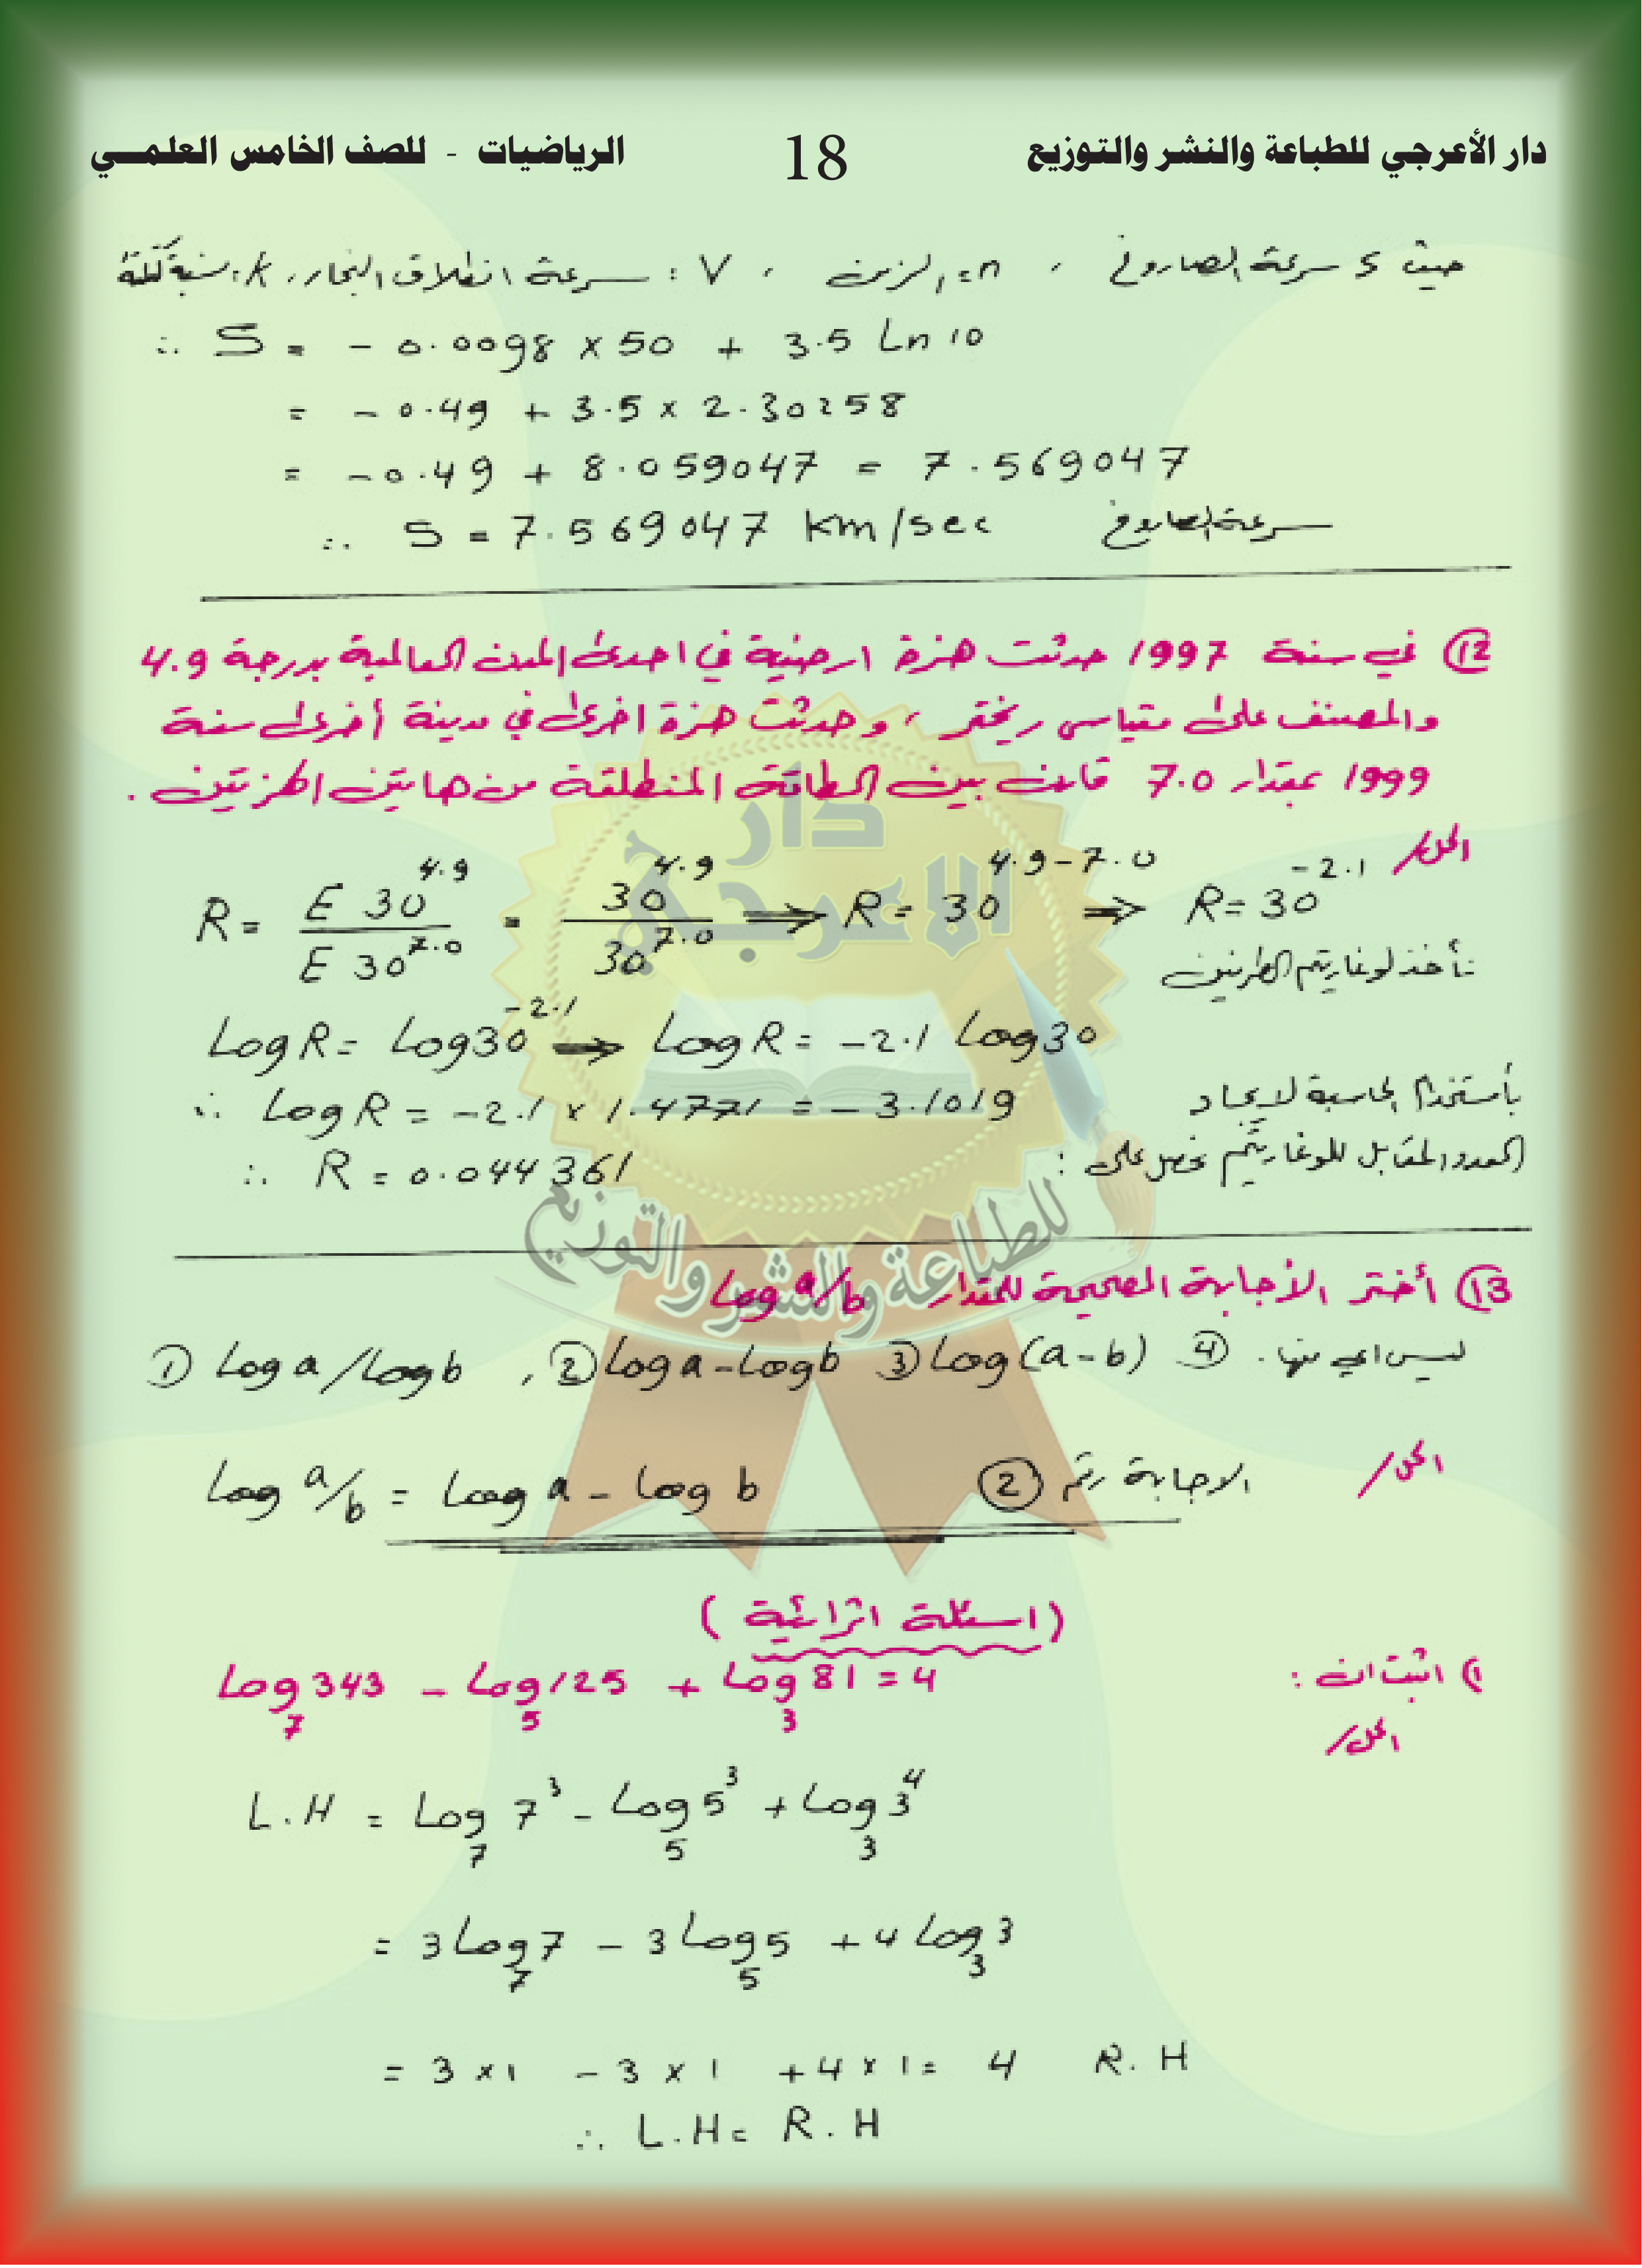 دار الأعرجي للطباعة والنشر والتوزيع 18 الرياضيات - للصف الخامس العلمي
حيث S سرعة الصاروخ ، n = الزمن ، V : سرعة انطلاق البخار ، K : نسبة كتلة
∴ S = - 0.0098 × 50 + 3.5 Ln 10
= - 0.49 + 3.5 × 2.30258
= - 0.49 + 8.059047 = 7.569047
∴ S = 7.569047 km/sec سرعة الصاروخ
⑫ في سنة 1997 حدثت هزة ارضية في احدى المدن العالمية بدرجة 4.9
والمصنف على مقياس ريختر ، وحدثت هزة اخرى في مدينة أخرى سنة
1999 بمقدار 7.0 قارن بين الطاقة المنطلقة من هاتين الهزتين .
الحل/
R = E 30^4.9 / E 30^7.0 = 30^4.9 / 30^7.0 ⟹ R = 30^4.9-7.0 ⟹ R = 30^-2.1
نأخذ لوغاريتم الطرفين
Log R = Log 30^-2.1 ⟹ Log R = -2.1 Log 30
∴ Log R = -2.1 × 1.4771 = -3.1019 بأستخدام الحاسبة لايجاد
العدد المقابل للوغاريتم نحصل على :
∴ R = 0.044361
⑬ أختر الأجابة الصحيحة للمقدار Log a/b
① Log a / Log b , ② Log a - Log b ③ Log (a - b) ④ ليس اي منها .
الحل/ الاجابة رقم ②
Log a/b = Log a - Log b
( اسئلة اثرائية )
1) اثبت ان :
Log₇ 343 - Log₅ 125 + Log₃ 81 = 4
الحل/
L.H = Log₇ 7³ - Log₅ 5³ + Log₃ 3⁴
= 3 Log₇ 7 - 3 Log₅ 5 + 4 Log₃ 3
= 3 × 1 - 3 × 1 + 4 × 1 = 4 R.H
∴ L.H = R.H
دار
الاعرجي
للطباعة والنشر والتوزيع